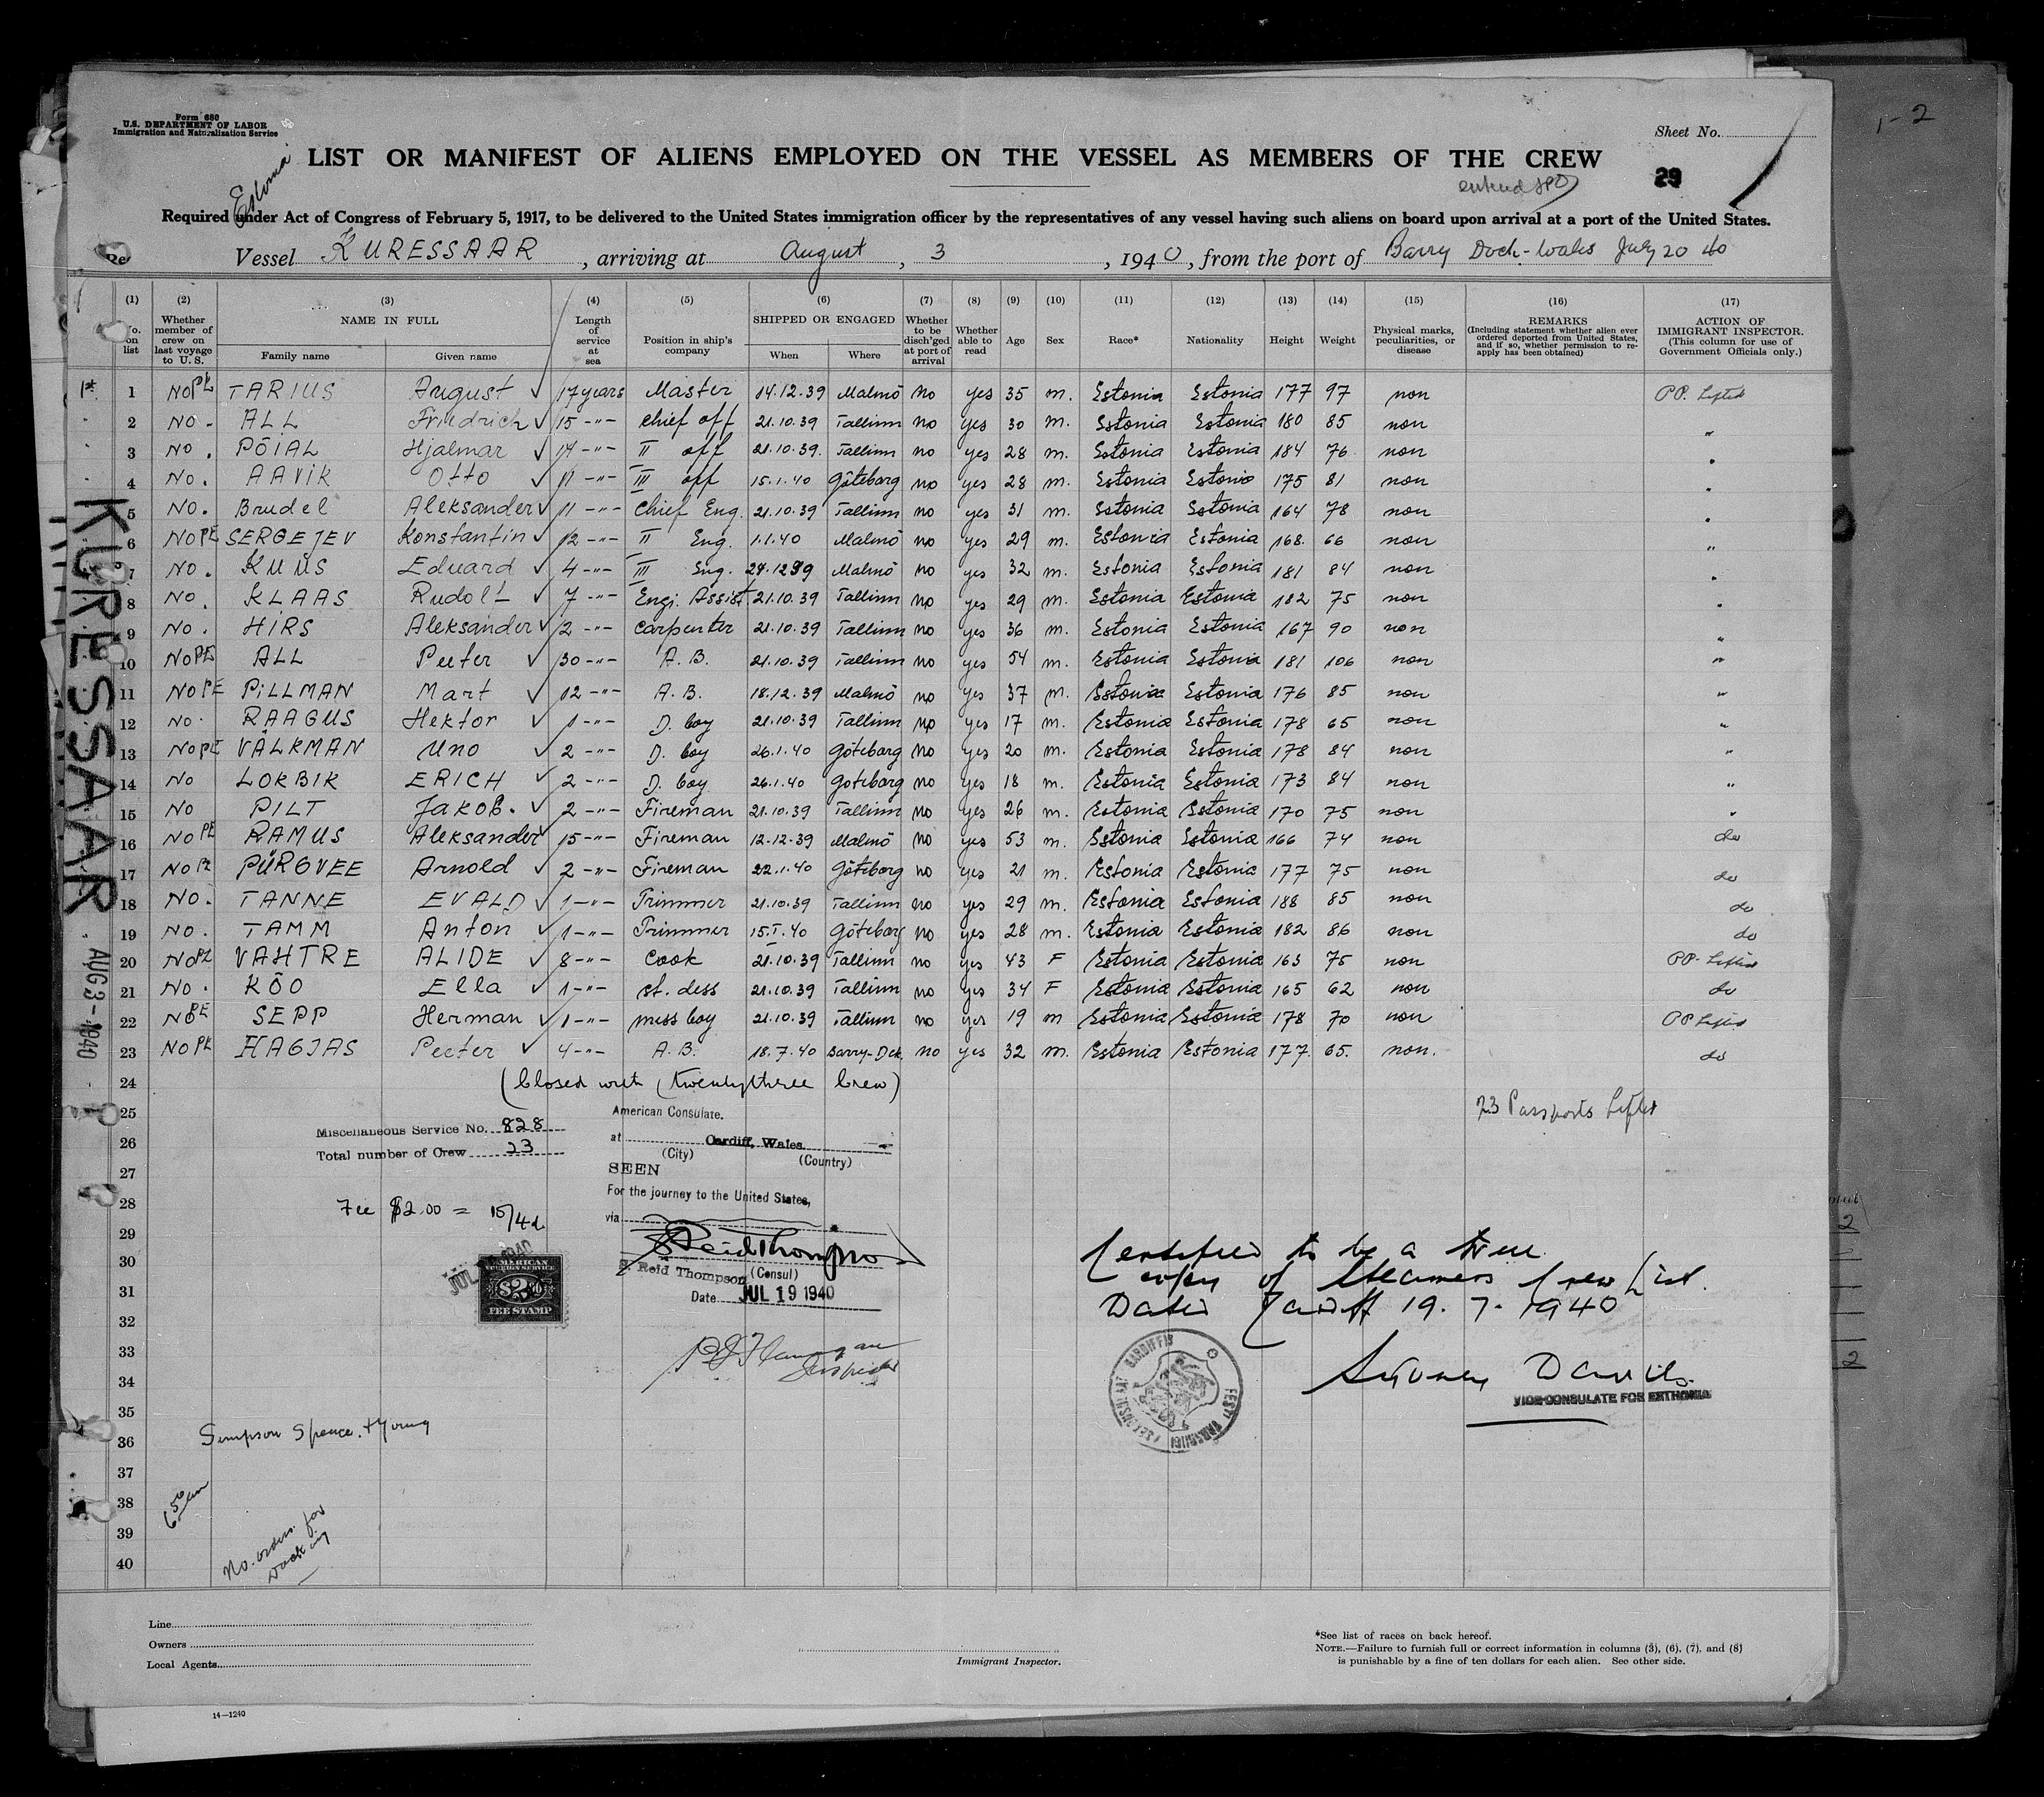 Form 680
U.S. DEPARTMENT OF LABOR
Immigration and Naturalization Service
Estonia
Sheet No.
1-2
LIST OR MANIFEST OF ALIENS EMPLOYED ON THE VESSEL AS MEMBERS OF THE CREW
29
Required under Act of Congress of February 5, 1917, to be delivered to the United States immigration officer by the representatives of any vessel having such aliens on board upon arrival at a port of the United States.
Vessel KURESSAAR, arriving at August, 3, 1940, from the port of Barry Dock-Wales July 20 40
(1) No. on list (2) Whether member of crew on last voyage to U. S. (3) NAME IN FULL Family name Given name (4) Length of service at sea (5) Position in ship's company (6) SHIPPED OR ENGAGED When Where (7) Whether to be disch'ged at port of arrival (8) Whether able to read (9) Age (10) Sex (11) Race* (12) Nationality (13) Height (14) Weight (15) Physical marks, peculiarities, or disease (16) REMARKS (Including statement whether alien ever ordered deported from United States, and if so, whether permission to reapply has been obtained) (17) ACTION OF IMMIGRANT INSPECTOR. (This column for use of Government Officials only.)
1 No PE TARIUS August ✓ 17 years Master 14.12.39 Malmö no yes 35 m. Estonia Estonia 177 97 non PP. Lifted
2 NO - ALL Friedrich ✓ 15 -"- chief off 21.10.39 Tallinn no yes 30 m. Estonia Estonia 180 85 non "
3 NO . PÕIAL Hjalmar ✓ 14 -"- II off 21.10.39. Tallinn no yes 28 m. Estonia Estonia 184 76 non "
4 NO. AAVIK Otto ✓ 11 -"- III off 15.1.40 Göteborg no yes 28 m. Estonia Estonia 175 81 non "
5 NO. Brudel Aleksander ✓ 11 -"- Chief Eng. 21.10.39 Tallinn no yes 31 m. Estonia Estonia 164 78 non "
6 NO PE SERGEJEV Konstantin ✓ 12 -"- II Eng. 1.1.40 Malmö no yes 29 m. Estonia Estonia 168. 66 non "
7 NO. KUUS Eduard ✓ 4 -"- III Eng. 27.12 39 Malmö no yes 32 m. Estonia Estonia 181 84 non "
8 NO. KLAAS Rudolf ✓ 7 -"- Engi. Assist 21.10.39 Tallinn no yes 29 m. Estonia Estonia 182 75 non "
9 NO. HIRS Aleksander ✓ 2 -"- carpenter 21.10.39 Tallinn no yes 36 m. Estonia Estonia 167 90 non "
10 NO PE ALL Peeter ✓ 30 -"- A. B. 21.10.39 Tallinn no yes 54 m. Estonia Estonia 181 106 non "
11 NO PE PILLMAN Mart ✓ 12 -"- A. B. 18.12.39 Malmö no yes 37 m. Estonia Estonia 176 85 non "
12 NO. RAAGUS Hektor ✓ 1 -"- D. boy 21.10.39 Tallinn no yes 17 m. Estonia Estonia 178 65 non "
13 NO PE VÄLKMAN Uno ✓ 2 -"- D. boy 26.1.40 Göteborg no yes 20 m. Estonia Estonia 178 84 non "
14 NO LOKBIK ERICH ✓ 2 -"- D. boy 26.1.40 Göteborg no yes 18 m. Estonia Estonia 173 84 non "
15 NO PILT JAKOB. ✓ 2 -"- Fireman 21.10.39 Tallinn no yes 26 m. Estonia Estonia 170 75 non "
16 NO PE RAMUS Aleksander ✓ 15 -"- Fireman 12.12.39 Malmö no yes 53 m. Estonia Estonia 166 74 non do
17 NO PE PÜRGVEE Arnold ✓ 2 -"- Fireman 22.1.40 Göteborg no yes 21 m. Estonia Estonia 177 75 non do
18 NO. TANNE EVALD ✓ 1 -"- Trimmer 21.10.39 Tallinn no yes 29 m. Estonia Estonia 188 85 non do
19 NO. TAMM Anton ✓ 1 -"- Trimmer 15.I.40 Göteborg no yes 28 m. Estonia Estonia 182 86 non do
20 NO PE VAHTRE ALIDE ✓ 8 -"- Cook 21.10.39 Tallinn no yes 43 F Estonia Estonia 163 75 non PP. Lifted
21 NO. KÕO Ella ✓ 1 -"- st. dess 21.10.39 Tallinn no yes 34 F Estonia Estonia 165 62 non do
22 NO PE SEPP Herman ✓ 1 -"- mess boy 21.10.39 Tallinn no yes 19 m Estonia Estonia 178 70 non PP Lifted
23 NO PE HAGJAS Peeter ✓ 4 -"- A. B. 18.7.40 Barry-Dck. no yes 32 m. Estonia Estonia 177. 65. non. do
24 (Closed with (twentythree crew)
25 American Consulate. 23 Passports Lifted
Miscellaneous Service No. 828
26 at Cardiff, Wales.
Total number of Crew 23
(City) (Country)
27 SEEN
28 For the journey to the United States,
via
Fee $2.00 = 15/4d
29
30 Certified to be a true
copy of Steamers Crew List.
E. Reid Thompson (Consul)
31 Date JUL 19 1940
Dated Cardiff 19. 7. 1940
AMERICAN FOREIGN SERVICE
$2.00
FEE STAMP
32
33
34
VICE-CONSULATE FOR ESTHONIA
35
36 Simpson Spence + Young
37
38
39
40
No. orders for
Docking
KURESSAAR
AUG 3 - 1940
Line
Owners
Local Agents
Immigrant Inspector.
*See list of races on back hereof.
NOTE.—Failure to furnish full or correct information in columns (3), (6), (7), and (8)
is punishable by a fine of ten dollars for each alien. See other side.
14—1240